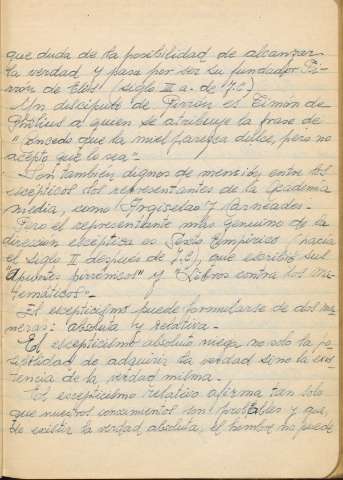 que duda de la posibilidad de alcanzar
la verdad y pasa por ser su fundador Pi-
rrón de Elis (siglo III a. de J.C)
Un discípulo de Pirrón es Timón de
Phlius a quien se atribuye la frase de
"Concedo que la miel parezca dulce, pero no
acepto que lo sea".-
Son también dignos de mención entre los
escépticos los representantes de la Academia
media, como Argiselao y Carneades.-
Pero el representante más genuino de la
dirección escéptica es Sexto Empírico (hacia
el siglo II después de J.C), que escribió sus
"Apuntes pirrónicos" y "Libros contra los ma-
temáticos".-
El escepticismo puede formularse de dos ma-
neras: absoluta y relativa.-
El escepticismo absoluto niega no solo la po-
sibilidad de adquirir la verdad sino la exis-
tencia de la verdad misma.-
El escepticismo relativo afirma tan solo
que nuestros conocimientos son probables y que,
de existir la verdad absoluta, el hombre no puede